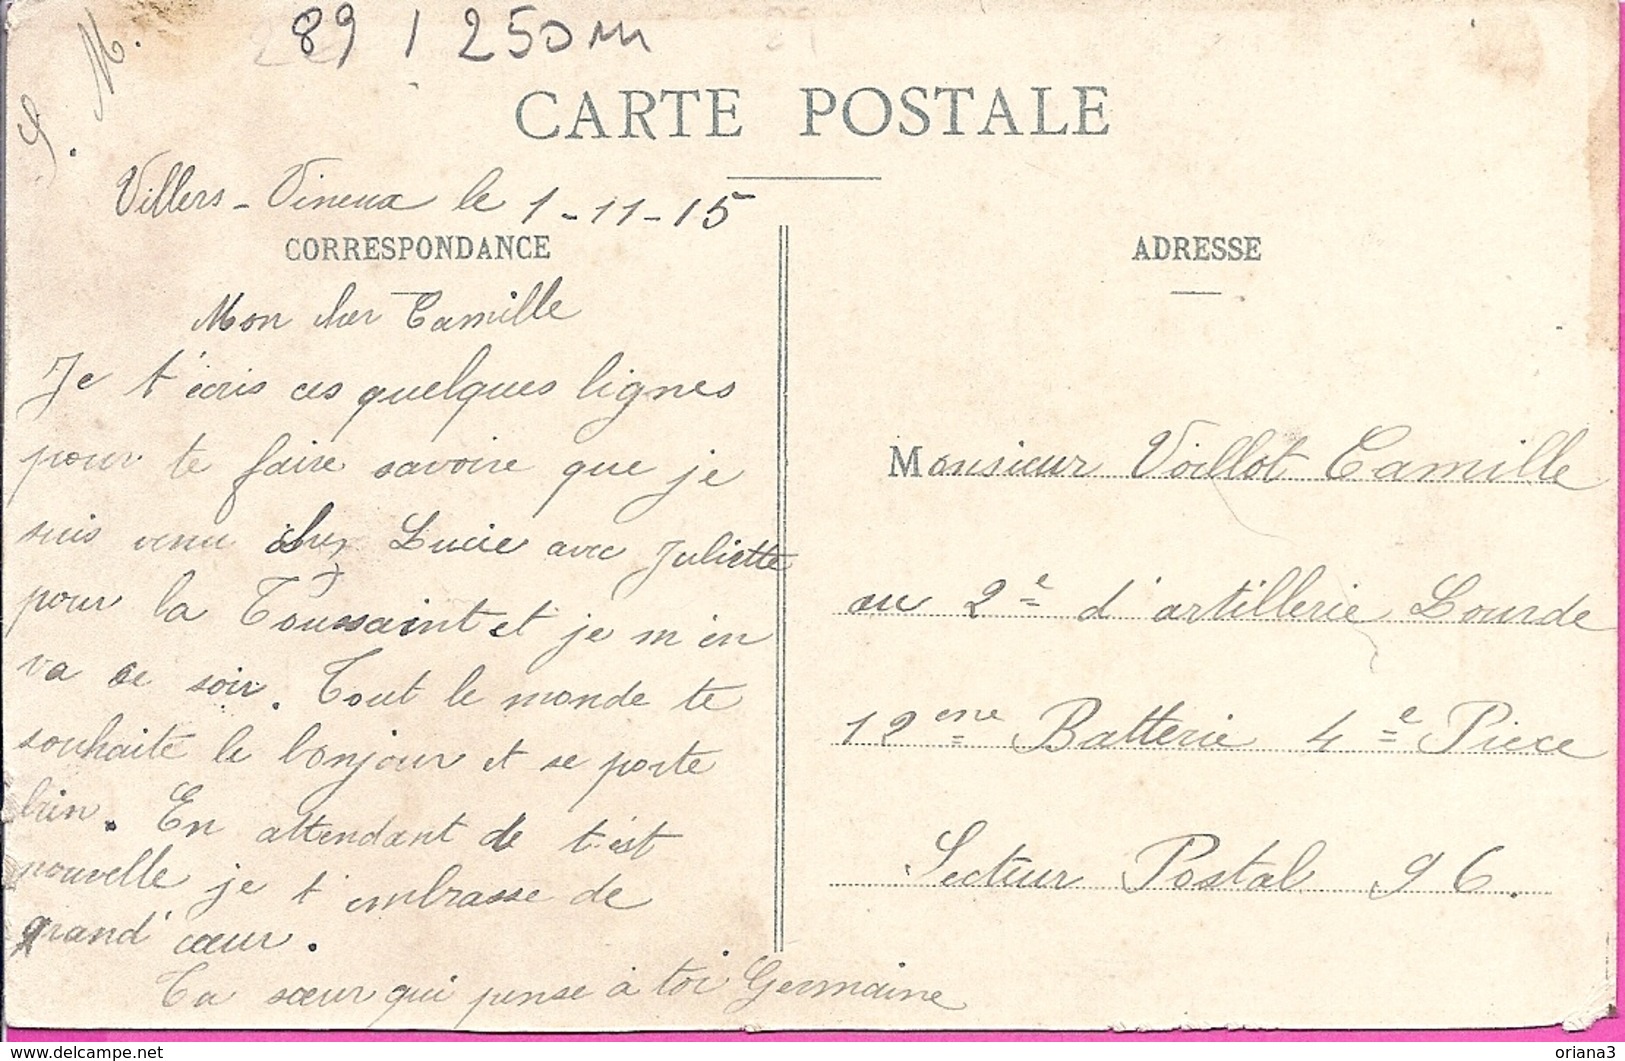 89 / 250 m
S. M.
CARTE POSTALE
Villers-Vineux le 1-11-15
CORRESPONDANCE
Mon cher Camille
Je t'écris ces quelques lignes
pour te faire savoire que je
suis venu chez Lucie avec Juliette
pour la Toussaint et je m'en
va ce soir. Tout le monde te
souhaite le bonjour et se porte
bien. En attendant de t'est
nouvelle je t'embrasse de
grand' cœur.
Ta sœur qui pense à toi Germaine
ADRESSE
Monsieur Voillot Camille
au 2e d'artillerie Lourde
12eme Batterie 4e Piece
Secteur Postal 96.
delcampe.net
oriana3